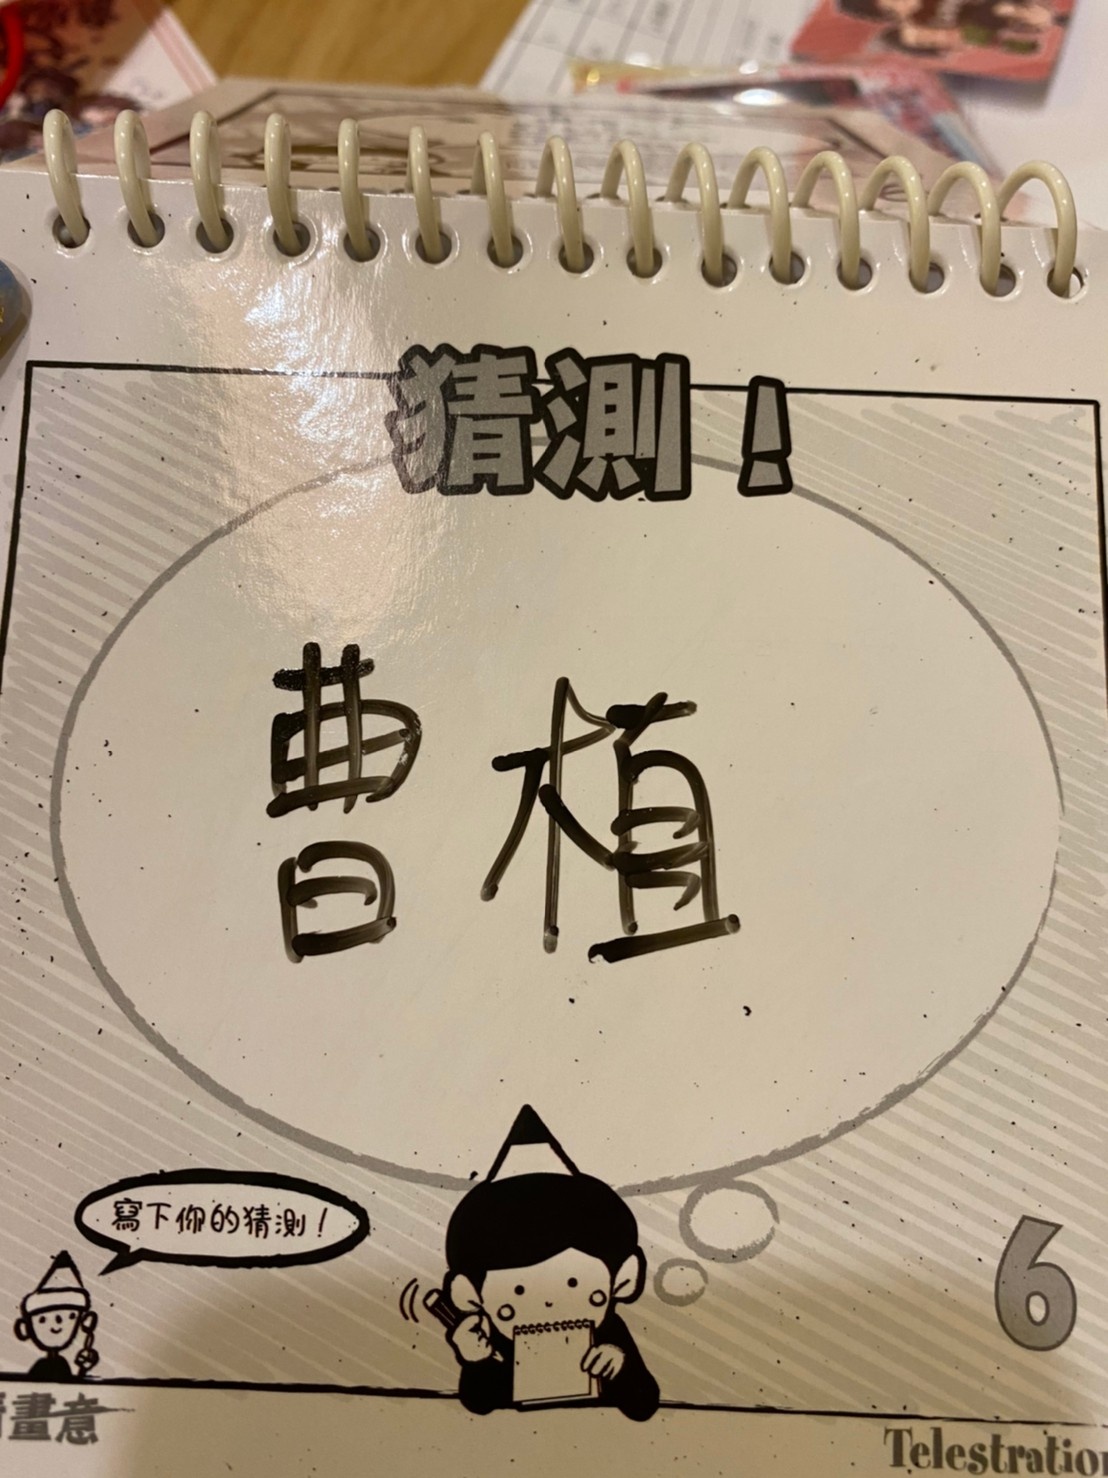 猜測！
曹植
寫下你的猜測！
6
畫意
Telestration